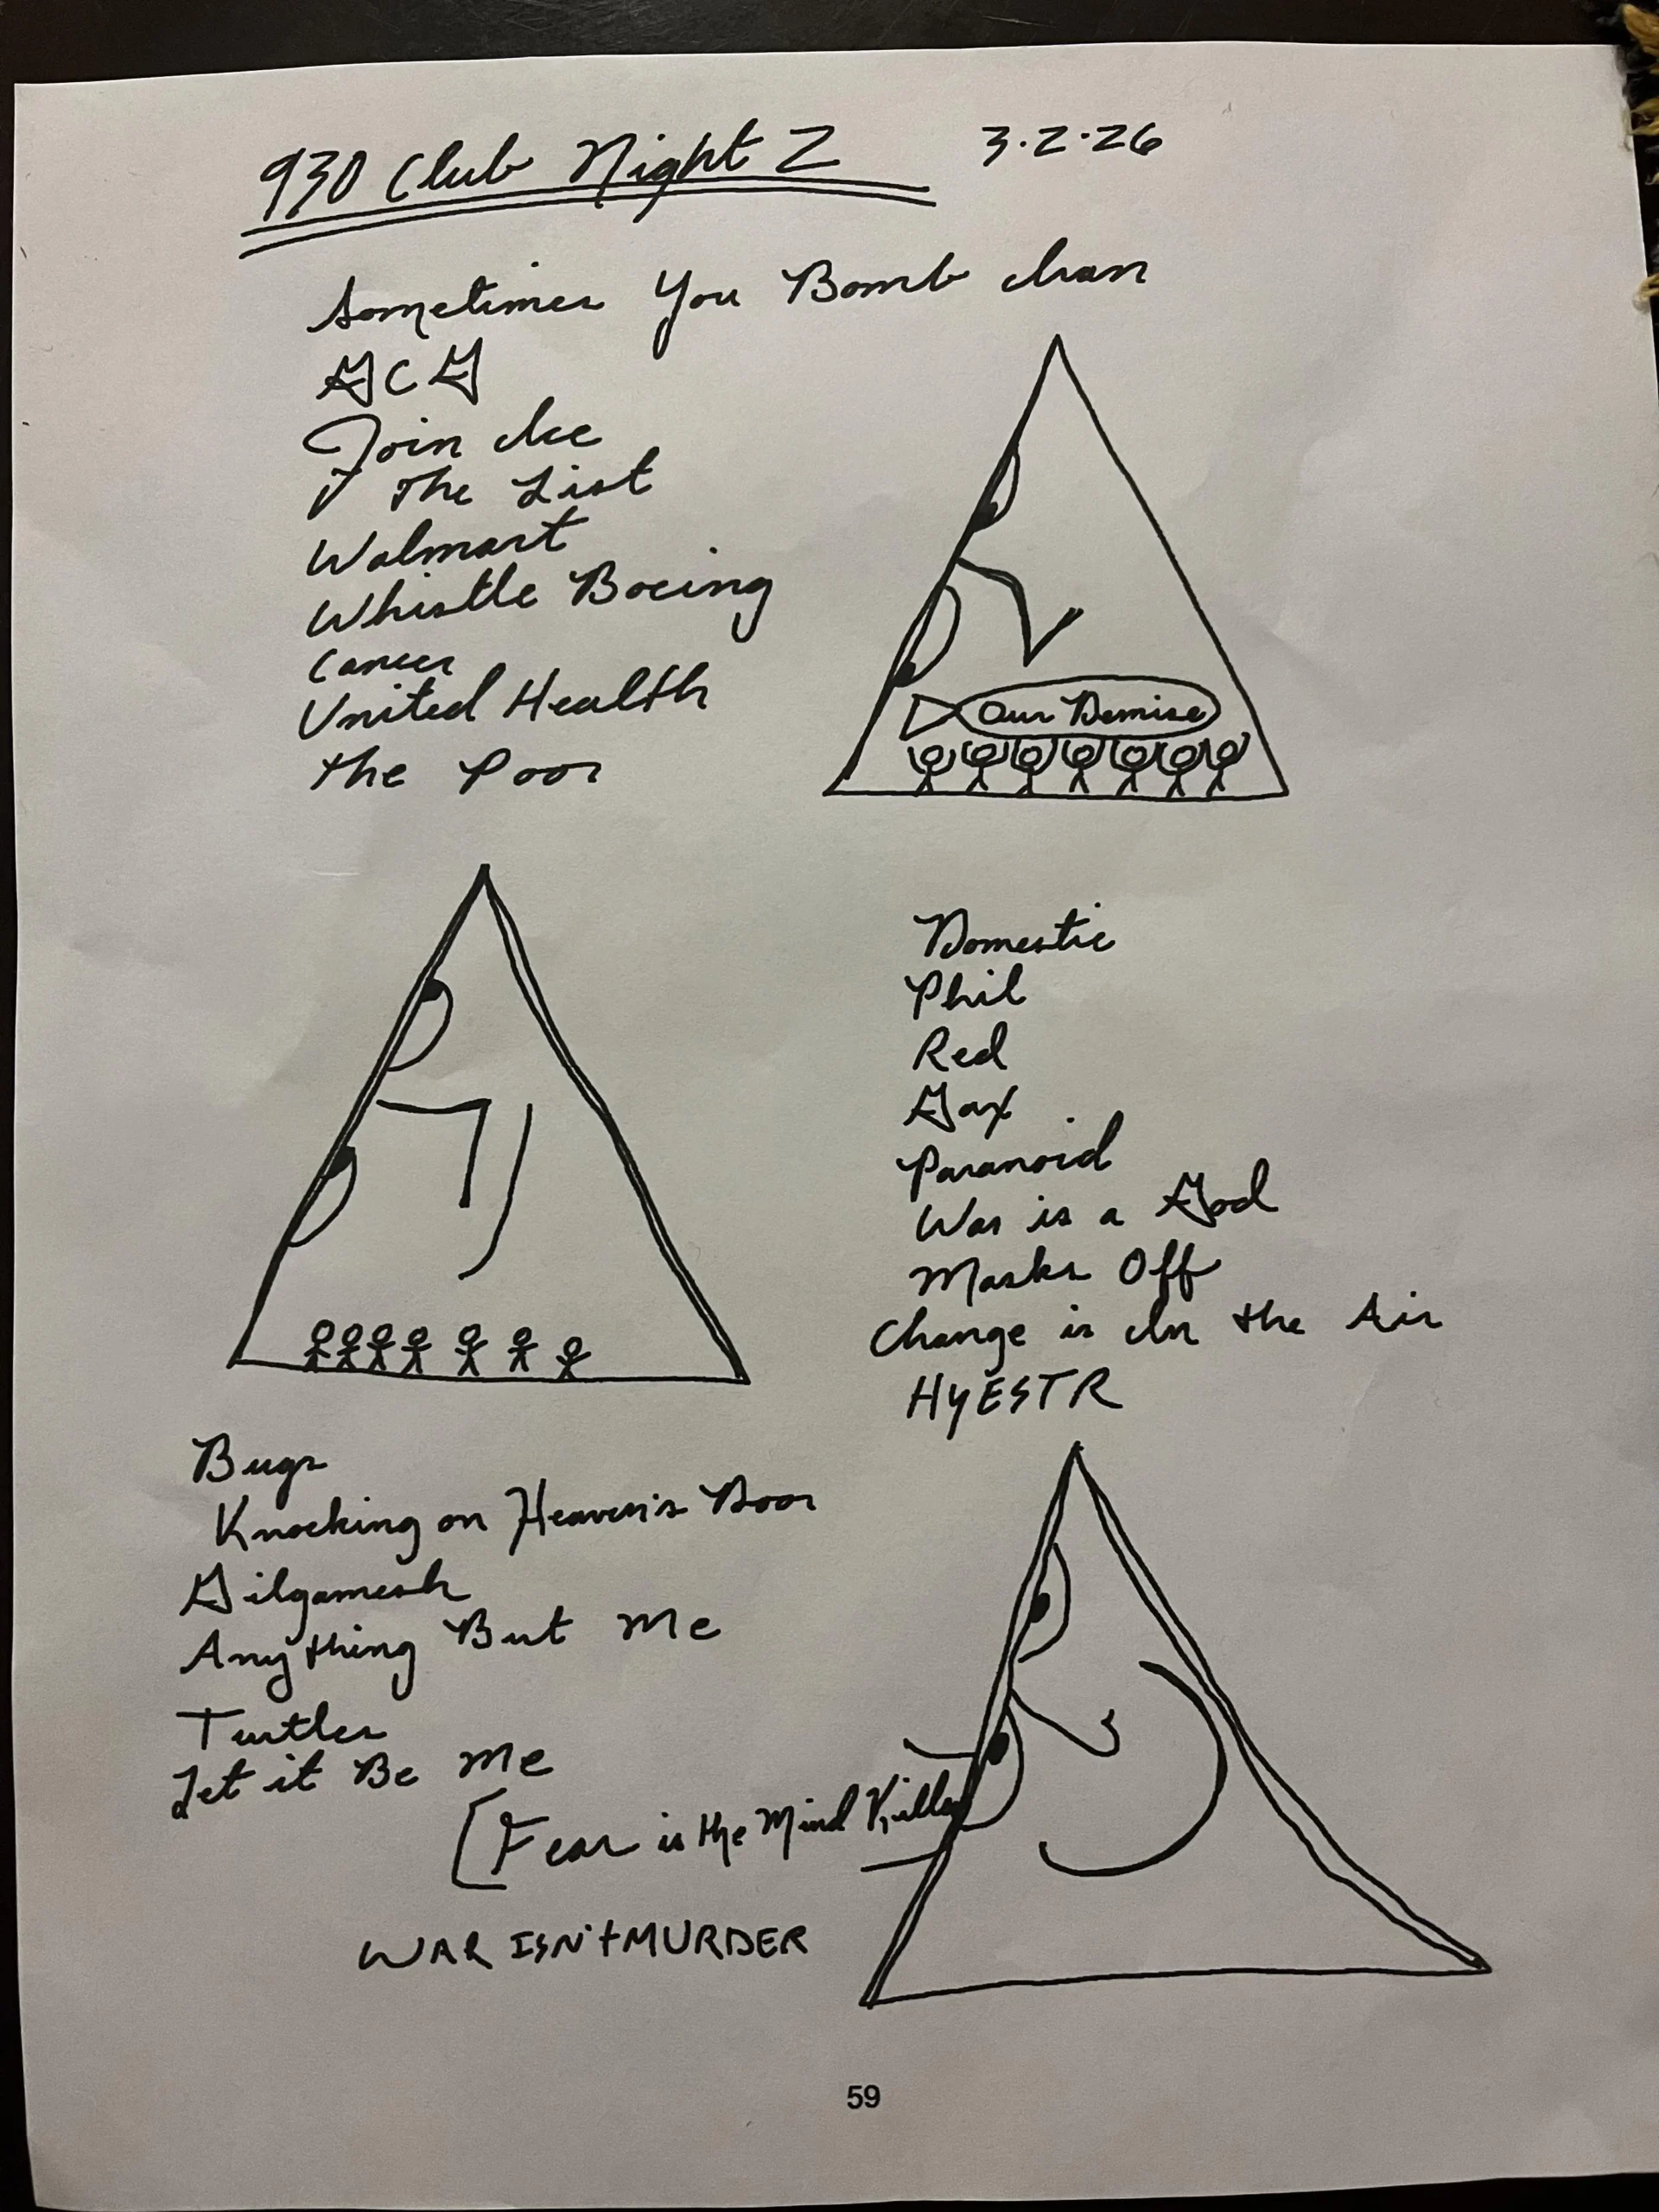 930 Club Night 2 3.2.26
Sometimes You Bomb Iran
GCG
Join Ice
The List
Walmart
Whistle Boeing
Cancer
United Health
the Poor
Our Demise
Domestic
Phil
Red
Gax
Paranoid
War is a God
Masks Off
Change is In the Air
HyESTR
Bugs
Knocking on Heaven's Door
Gilgamesh
Anything But Me
Turtles
Let it Be Me
[Fear is the Mind Killer
WAR ISN't MURDER
59